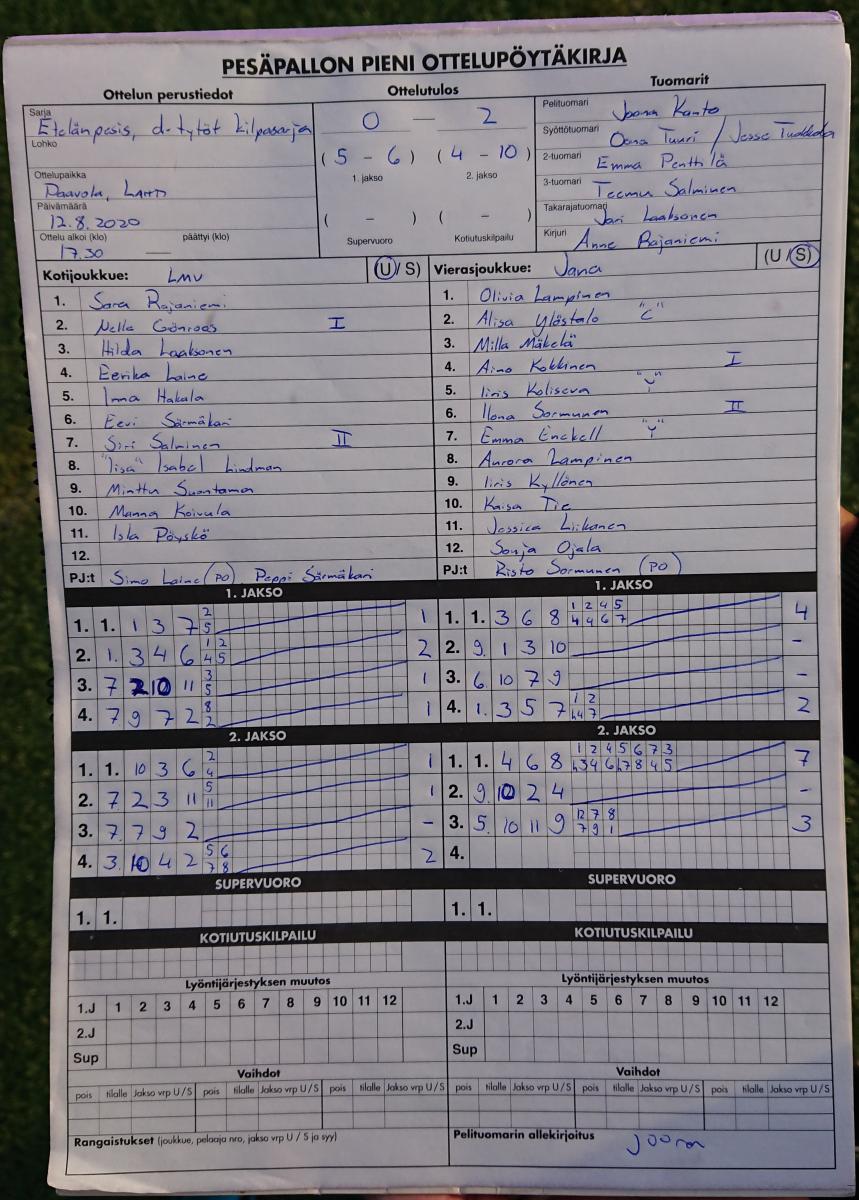 PESÄPALLON PIENI OTTELUPÖYTÄKIRJA
Ottelun perustiedot
Sarja
Etelänpesis, d-tytöt kilpasarja
Lohko
Ottelupaikka
Paavola, LAHTI
Päivämäärä
12.8.2020
Ottelu alkoi (klo) päättyi (klo)
17.30 —
Ottelutulos
0 — 2
( 5 - 6 ) ( 4 - 10 )
1. jakso 2. jakso
( - ) ( - )
Supervuoro Kotiutuskilpailu
Tuomarit
Pelituomari Joona Kanto
Syöttötuomari Oona Tuuri / Jesse
2-tuomari Emma Penttilä
3-tuomari Teemu Salminen
Takarajatuomari Jari Laaksonen
Kirjuri Anne Rajaniemi
Kotijoukkue: LMV (U / S)
1. Sara Rajaniemi
2. Nella Gönroos I
3. Hilda Laaksonen
4. Eerika Laine
5. Inna Hakala
6. Eevi Särmäkari
7. Siri Salminen II
8. "Iisa" Isabel Lindman
9. Minttu Suontama
10. Manna Koivula
11. Isla Pöyskö
12.
PJ:t Simo Laine (PO) Peppi Särmäkari
Vierasjoukkue: Jana (U / S)
1. Olivia Lampinen
2. Alisa Ylöstalo "C"
3. Milla Mäkelä
4. Aino Kokkinen I
5. Iiris Koliseva "J"
6. Ilona Sormunen II
7. Emma Enckell "Y"
8. Aurora Lampinen
9. Iiris Kyllönen
10. Kaisa Tie
11. Jessica Liikanen
12. Sonja Ojala
PJ:t Risto Sormunen (PO)
1. JAKSO
1. 1. 1 3 7 2 5 1
2. 1. 3 4 6 1 2 4 5 2
3. 7 2 10 11 3 5 1
4. 7 9 7 2 8 2 1
2. JAKSO
1. 1. 10 3 6 2 4 1
2. 7 2 3 11 5 11 1
3. 7 7 9 2 –
4. 3. 10 4 2 5 6 7 8 2
SUPERVUORO
1. 1.
KOTIUTUSKILPAILU
Lyöntijärjestyksen muutos
1.J 1 2 3 4 5 6 7 8 9 10 11 12
2.J
Sup
Vaihdot
pois tilalle Jakso vrp U / S pois tilalle Jakso vrp U / S pois tilalle Jakso vrp U / S
Rangaistukset (joukkue, pelaaja nro, jakso vrp U / S ja syy)
1. JAKSO
1. 1. 3 6 8 1 2 4 5 4 4 6 7 4
2. 9. 1 3 10 –
3. 6. 10 7 9 –
4. 1. 3 5 7 1 2 4 7 2
2. JAKSO
1. 1. 4 6 8 1 2 4 5 6 7 3 3 4 6 7 8 4 5 7
2. 9. 10 2 4 –
3. 5. 10 11 9 12 7 8 7 9 1 3
4.
SUPERVUORO
1. 1.
KOTIUTUSKILPAILU
Lyöntijärjestyksen muutos
1.J 1 2 3 4 5 6 7 8 9 10 11 12
2.J
Sup
Vaihdot
pois tilalle Jakso vrp U / S pois tilalle Jakso vrp U / S pois tilalle Jakso vrp U / S
Pelituomarin allekirjoitus